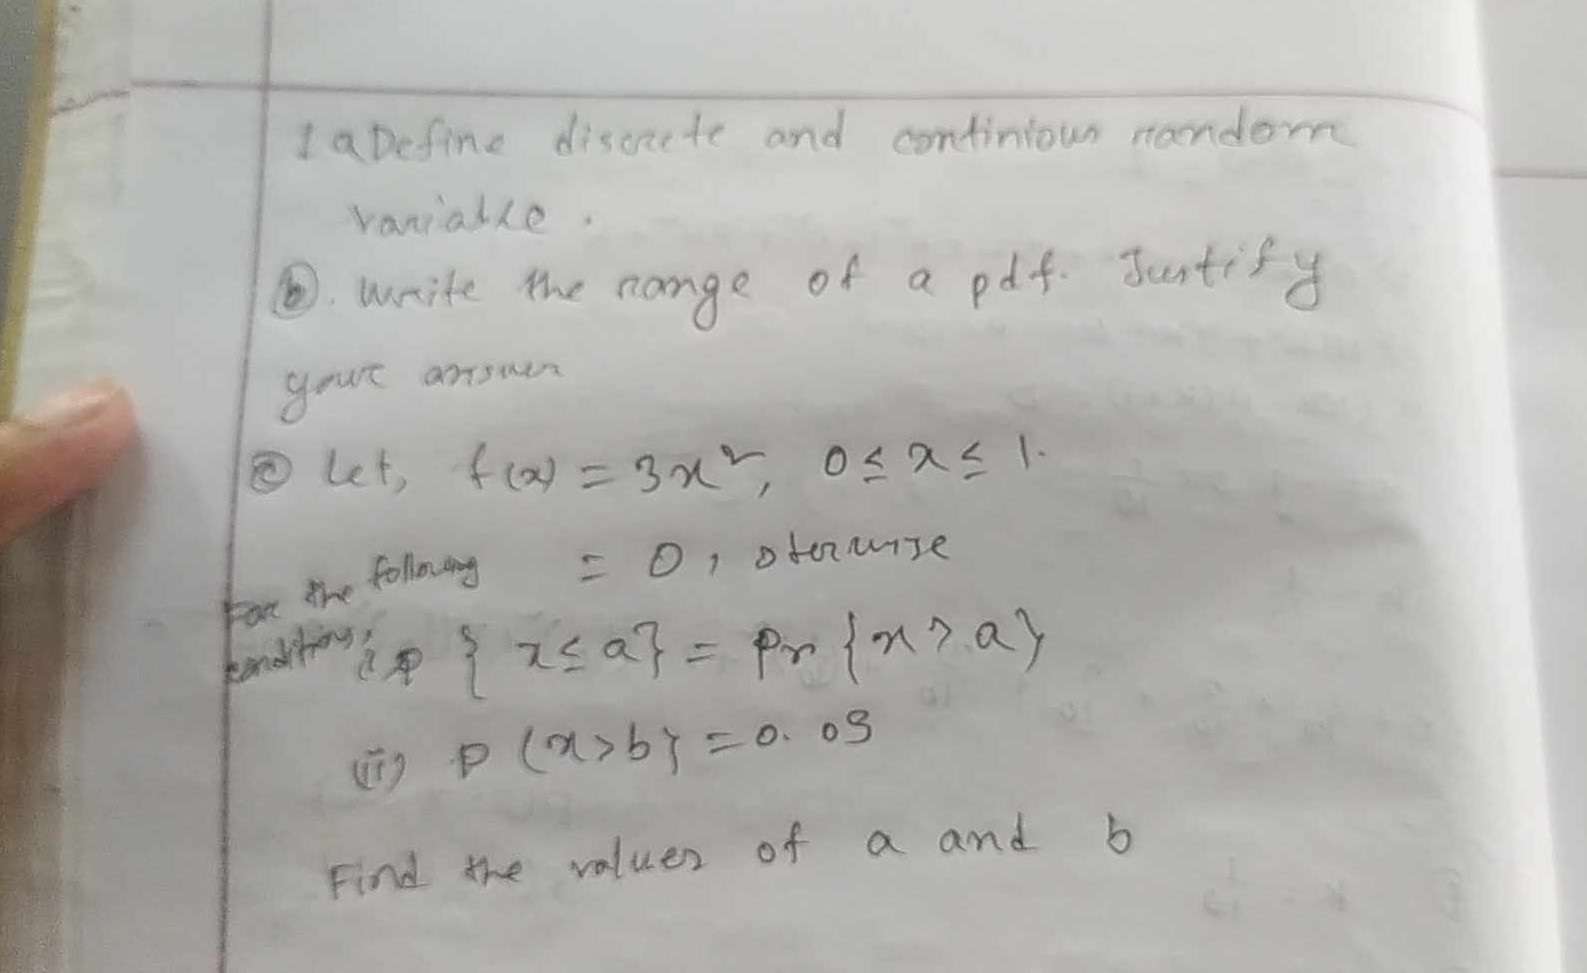 1 a Define discrete and continious random
variable.
ⓑ. Write the range of a pdf. Justify
your answer
ⓒ Let, f(x) = 3x², 0 ≤ x ≤ 1.
= 0, oterwise
For the following
conditions,
i, P { x ≤ a} = Pr {x > a}
(ii) P (x > b} = 0.05
Find the values of a and b